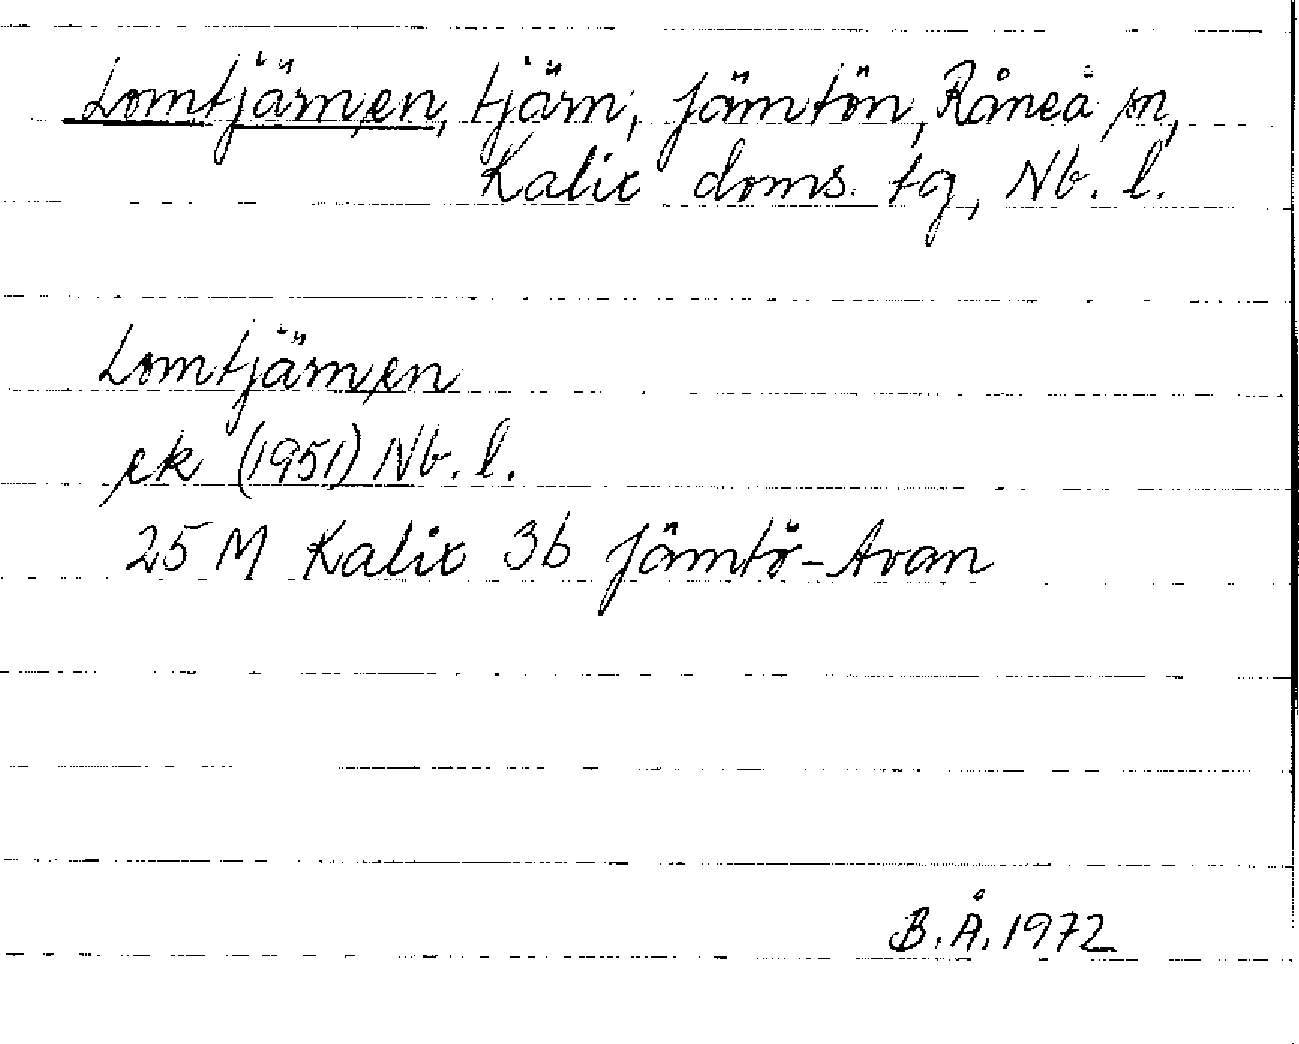 Lomtjärnen, tjärn, Jämtön, Råneå sn,
Kalix doms. tg, Nb. l.
Lomtjärnen
ek (1951) Nb. l.
25 M Kalix 3b Jämtö-Avan
B.Å. 1972